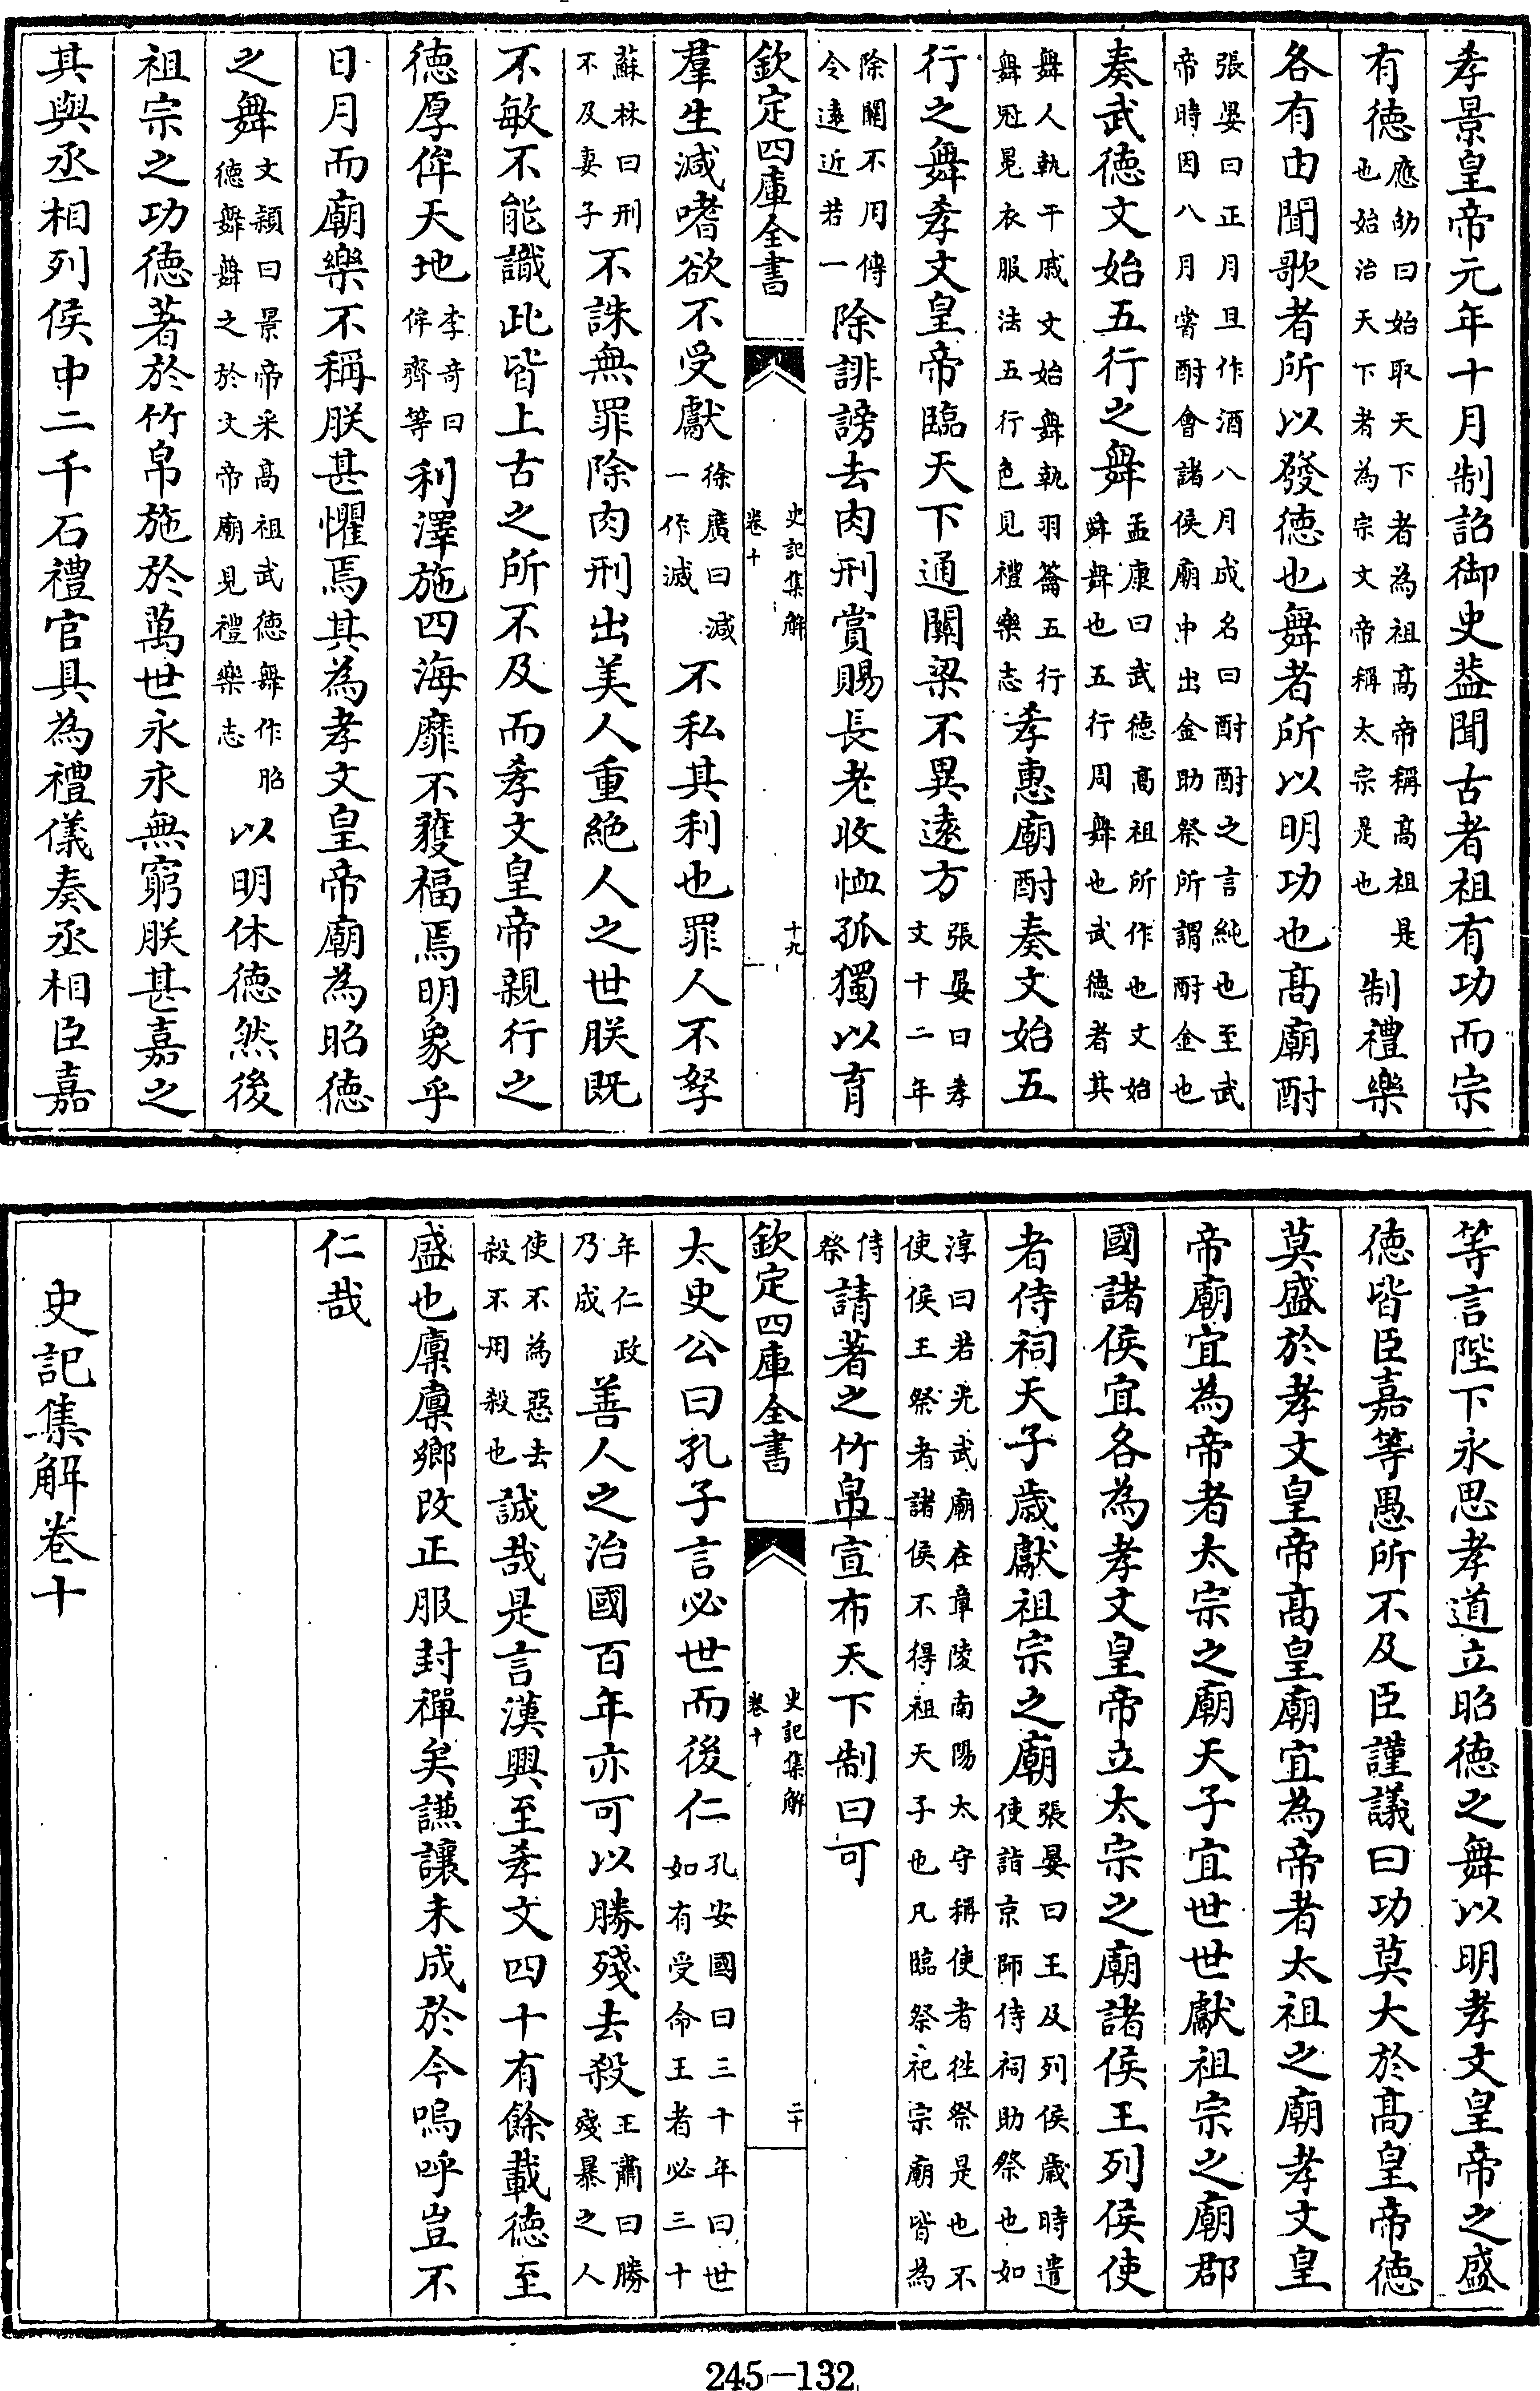 孝景皇帝元年十月制詔御史葢聞古者祖有功而宗
有徳應劭曰始取天下者為祖髙帝稱髙祖是也始治天下者為宗文帝稱太宗是也制禮樂
各有由聞歌者所以發徳也舞者所以明功也髙廟酎
張晏曰正月旦作酒八月成名曰酎酎之言純也至武帝時因八月嘗酎會諸侯廟中出金助祭所謂酎金也
奏武徳文始五行之舞孟康曰武徳髙祖所作也文始舜舞也五行周舞也武徳者其
舞人執干戚文始舞執羽籥五行舞冠冕衣服法五行色見禮樂志孝惠廟酎奏文始五
行之舞孝文皇帝臨天下通關梁不異逺方張晏曰孝文十二年
除關不用傳令逺近若一除誹謗去肉刑賞賜長老收恤孤獨以育
欽定四庫全書
史記集解
卷十
十九
羣生減嗜欲不受獻徐廣曰減一作滅不私其利也罪人不孥
蘇林曰刑不及妻子不誅無罪除肉刑出美人重絶人之世朕既
不敏不能識此皆上古之所不及而孝文皇帝親行之
徳厚侔天地李竒曰侔齊等利澤施四海靡不獲福焉明象乎
日月而廟樂不稱朕甚懼焉其為孝文皇帝廟為昭徳
之舞文穎曰景帝采髙祖武徳舞作昭徳舞舞之於文帝廟見禮樂志以明休徳然後
祖宗之功徳著於竹帛施於萬世永永無窮朕甚嘉之
其與丞相列侯中二千石禮官具為禮儀奏丞相臣嘉
等言陛下永思孝道立昭徳之舞以明孝文皇帝之盛
徳皆臣嘉等愚所不及臣謹議曰功莫大於髙皇帝徳
莫盛於孝文皇帝髙皇廟宜為帝者太祖之廟孝文皇
帝廟宜為帝者太宗之廟天子宜世世獻祖宗之廟郡
國諸侯宜各為孝文皇帝立太宗之廟諸侯王列侯使
者侍祠天子歳獻祖宗之廟張晏曰王及列侯歳時遣使詣京師侍祠助祭也如
淳曰若光武廟在章陵南陽太守稱使者往祭是也不使侯王祭者諸侯不得祖天子也凡臨祭祀宗廟皆為
侍祭請著之竹帛宣布天下制曰可
欽定四庫全書
史記集解
卷十
二十
太史公曰孔子言必世而後仁孔安國曰三十年曰世如有受命王者必三十
年仁政乃成善人之治國百年亦可以勝殘去殺王肅曰勝殘暴之人
使不為惡去殺不用殺也誠哉是言漢興至孝文四十有餘載徳至
盛也廩廩鄉改正服封禪矣謙讓未成於今嗚呼豈不
仁哉
史記集解卷十
245-132